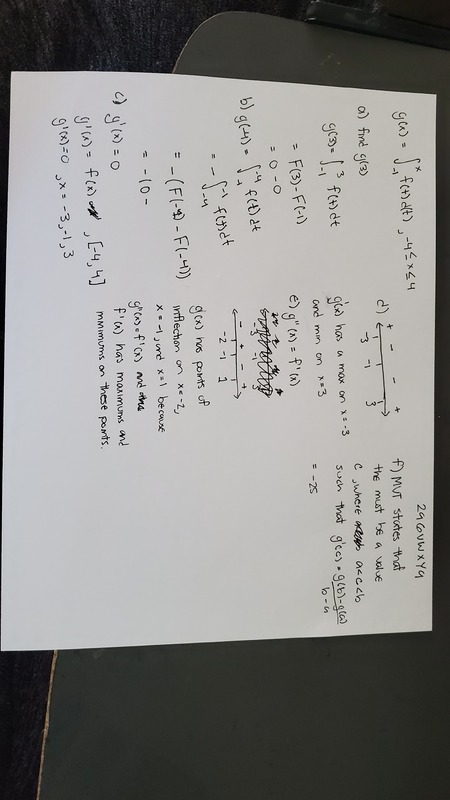 296VWXY9
g(x) = ∫₋₁ˣ f(t)d(t) , -4 ≤ x ≤ 4
a) find g(3)
g(3) = ∫₋₁³ f(t)dt
= F(3) - F(-1)
= 0 - 0
b) g(-4) = ∫₋₁⁻⁴ f(t)dt
= - ∫₋₄⁻¹ f(t)dt
= - (F(-1) - F(-4))
= - (0 -
c) g'(x) = 0
g'(x) = f(x) , [-4, 4]
g'(x)=0 , x = -3, -1, 3
d) + - - +
3 -1 3
g'(x) has a max on x = -3
and min on x = 3
e) g''(x) = f'(x)
- + - +
-2 -1 1
g'(x) has points of
inflection on x = -2,
x = -1, and x = 1 because
g''(x) = f'(x) and
f'(x) has maximums and
minimums on these points.
f) MVT states that
the must be a value
c, where a<c<b
such that g'(c) = g(b) - g(a)
b - a
= -25